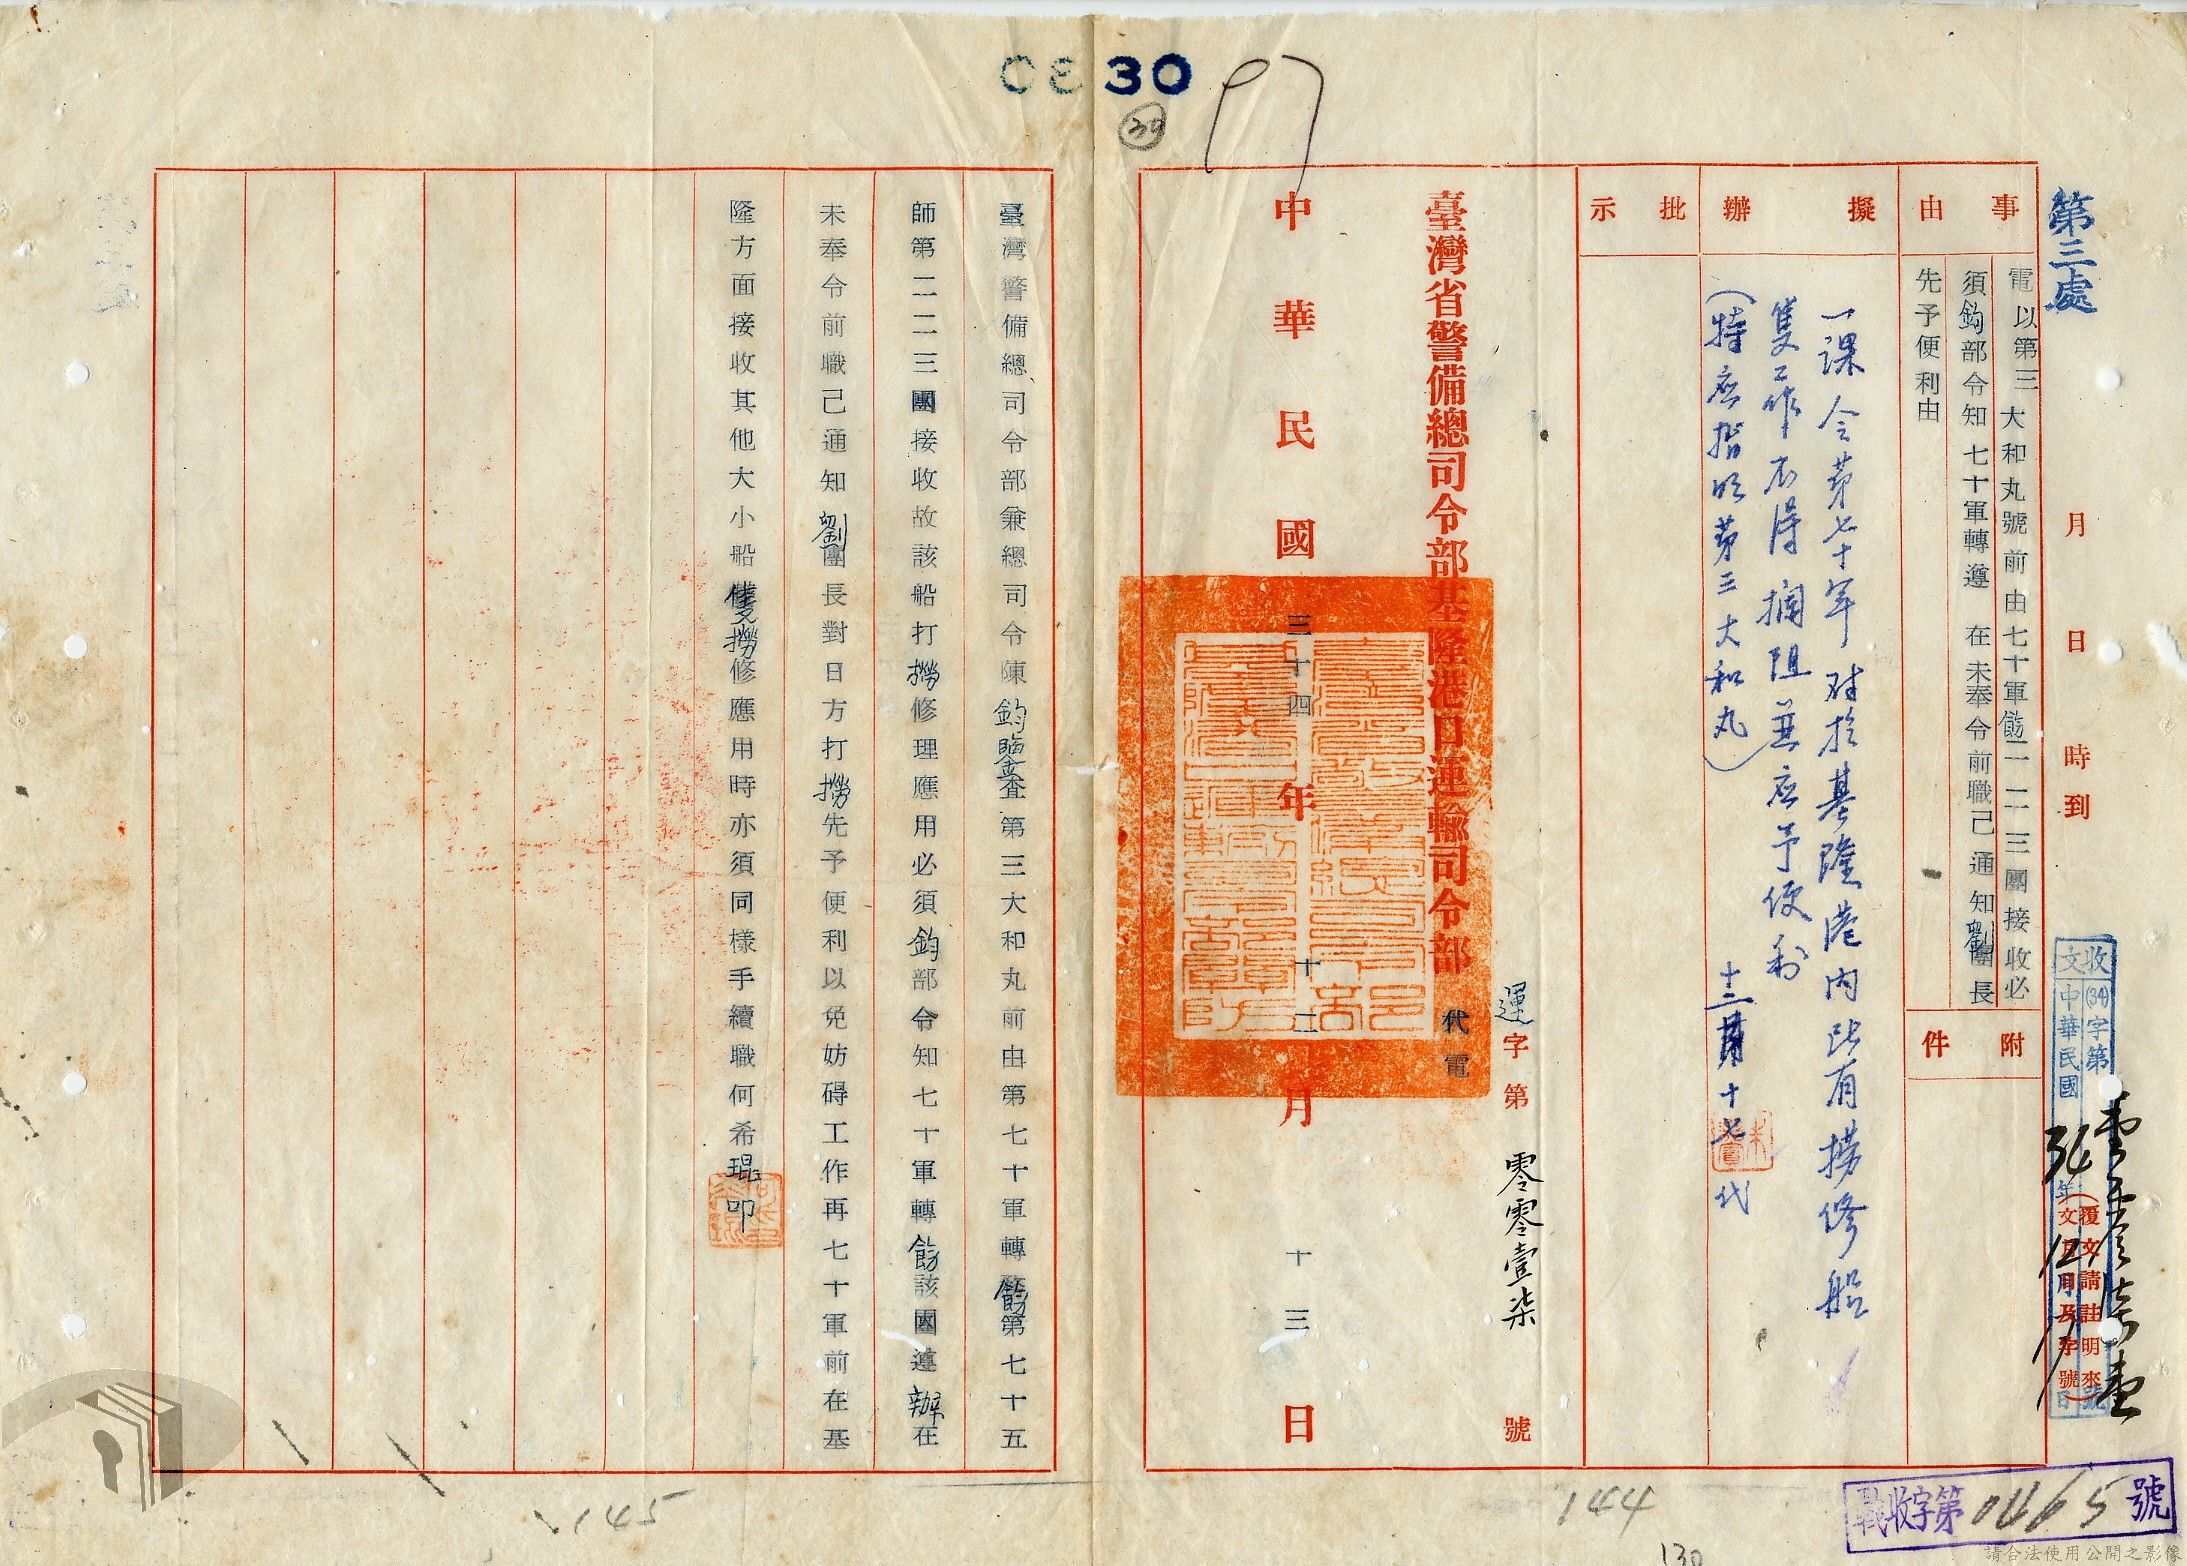 第三處
月 日 時到
收文 (34)字第 號
中華民國 34年12月17日
(覆文請註明來文日月及字號)
事由
電以第三大和丸號前由七十軍飭二二三團接收必
須鈞部令知七十軍轉遵 在未奉令前職己通知劉團長
先予便利由
附件
擬辦
一課令第七十軍對於基隆港內所有撈修船
隻工作不得攔阻並应予便利
(特应指明第三大和丸)
十二月十七 代
批示
運字第零零壹柒號
臺灣省警備總司令部基隆港口運輸司令部 代電
中華民國三十四年十二月十三日
臺灣警備總司令部兼總司令陳鈞鑒查第三大和丸前由第七十軍轉飭第七十五
師第二二三團接收故該船打撈修理應用必須鈞部令知七十軍轉飭該團遵辦在
未奉令前職己通知劉團長對日方打撈先予便利以免妨碍工作再七十軍前在基
隆方面接收其他大小船隻撈修應用時亦須同樣手續職何希琨叩
0330
30
144
145
130
戰收字第0465號
請合法使用公開之影像